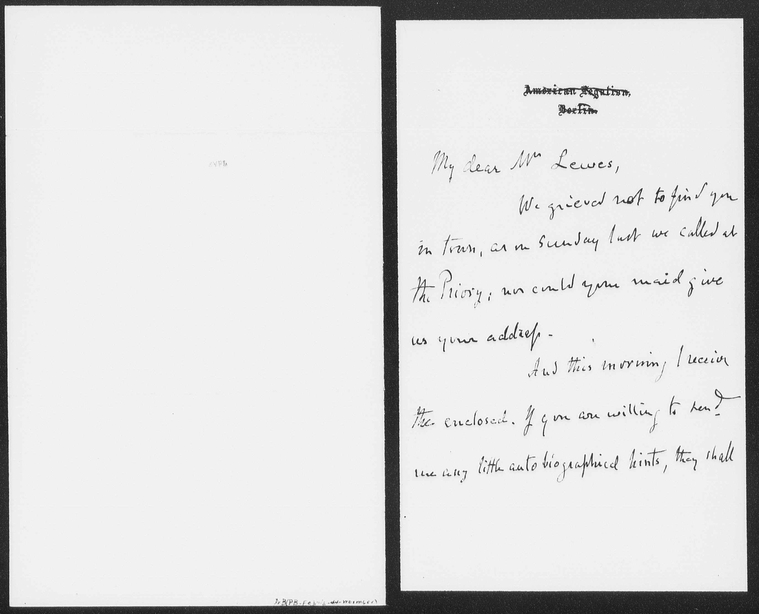 American Legation,
Berlin.
My dear Mrs Lewes,
We grieved not to find you
in town, as on Sunday last we called at
the Priory; nor could your maid give
us your address.
And this morning I receive
the enclosed. If you are willing to send
me any little autobiographical hints, they shall